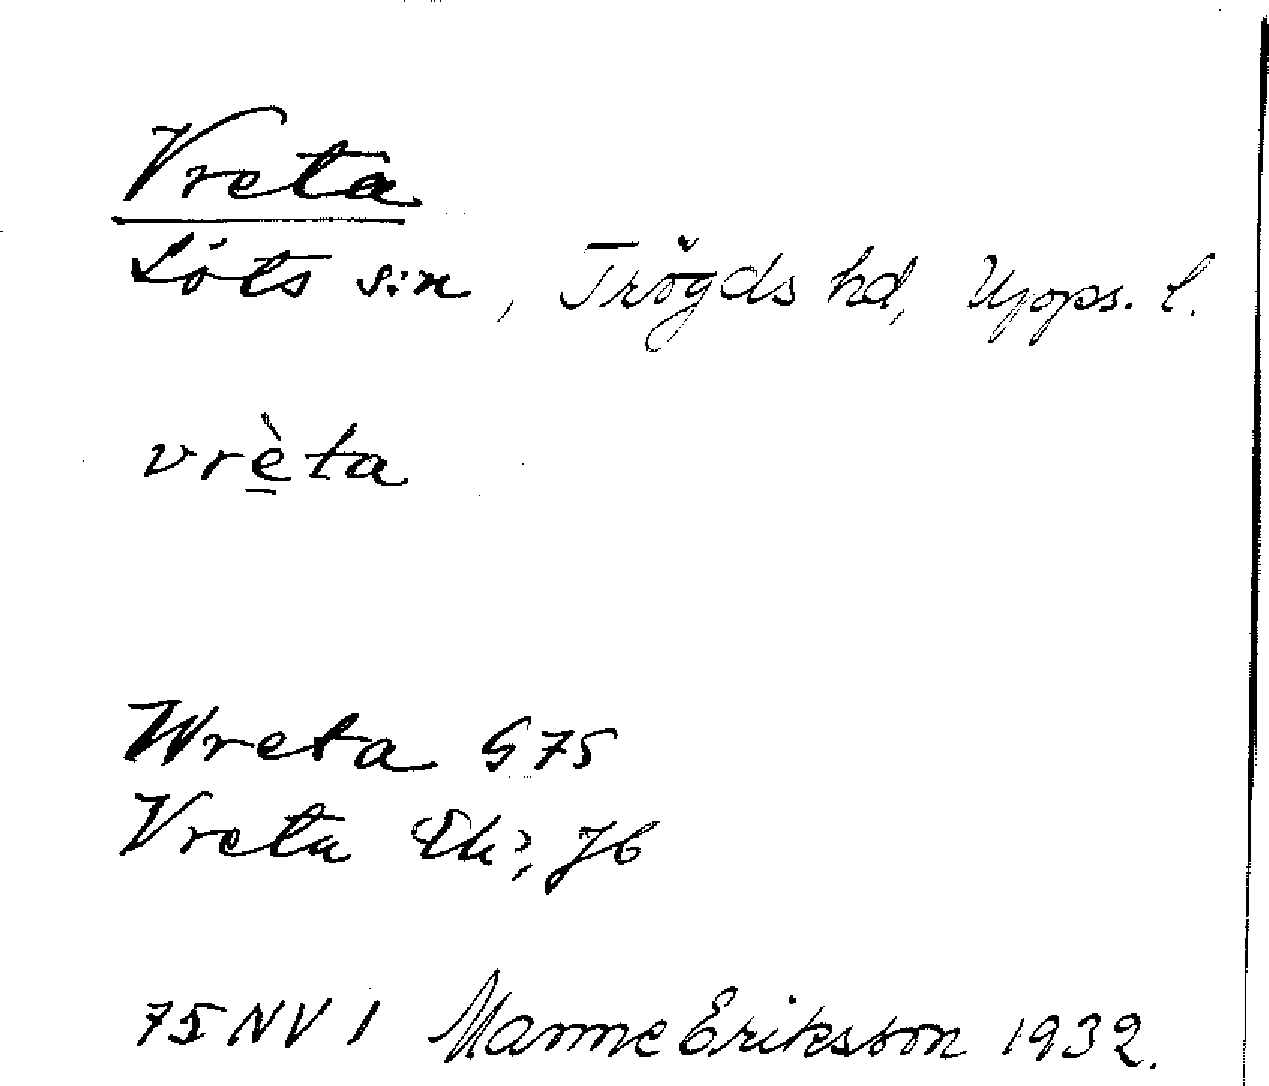 Vreta
Löts s:n, Trögds hd, Upps. l.
vrè̱ta
Wreta G 75
Vreta Ek, Jb
75 NV 1 Manne Eriksson 1932.